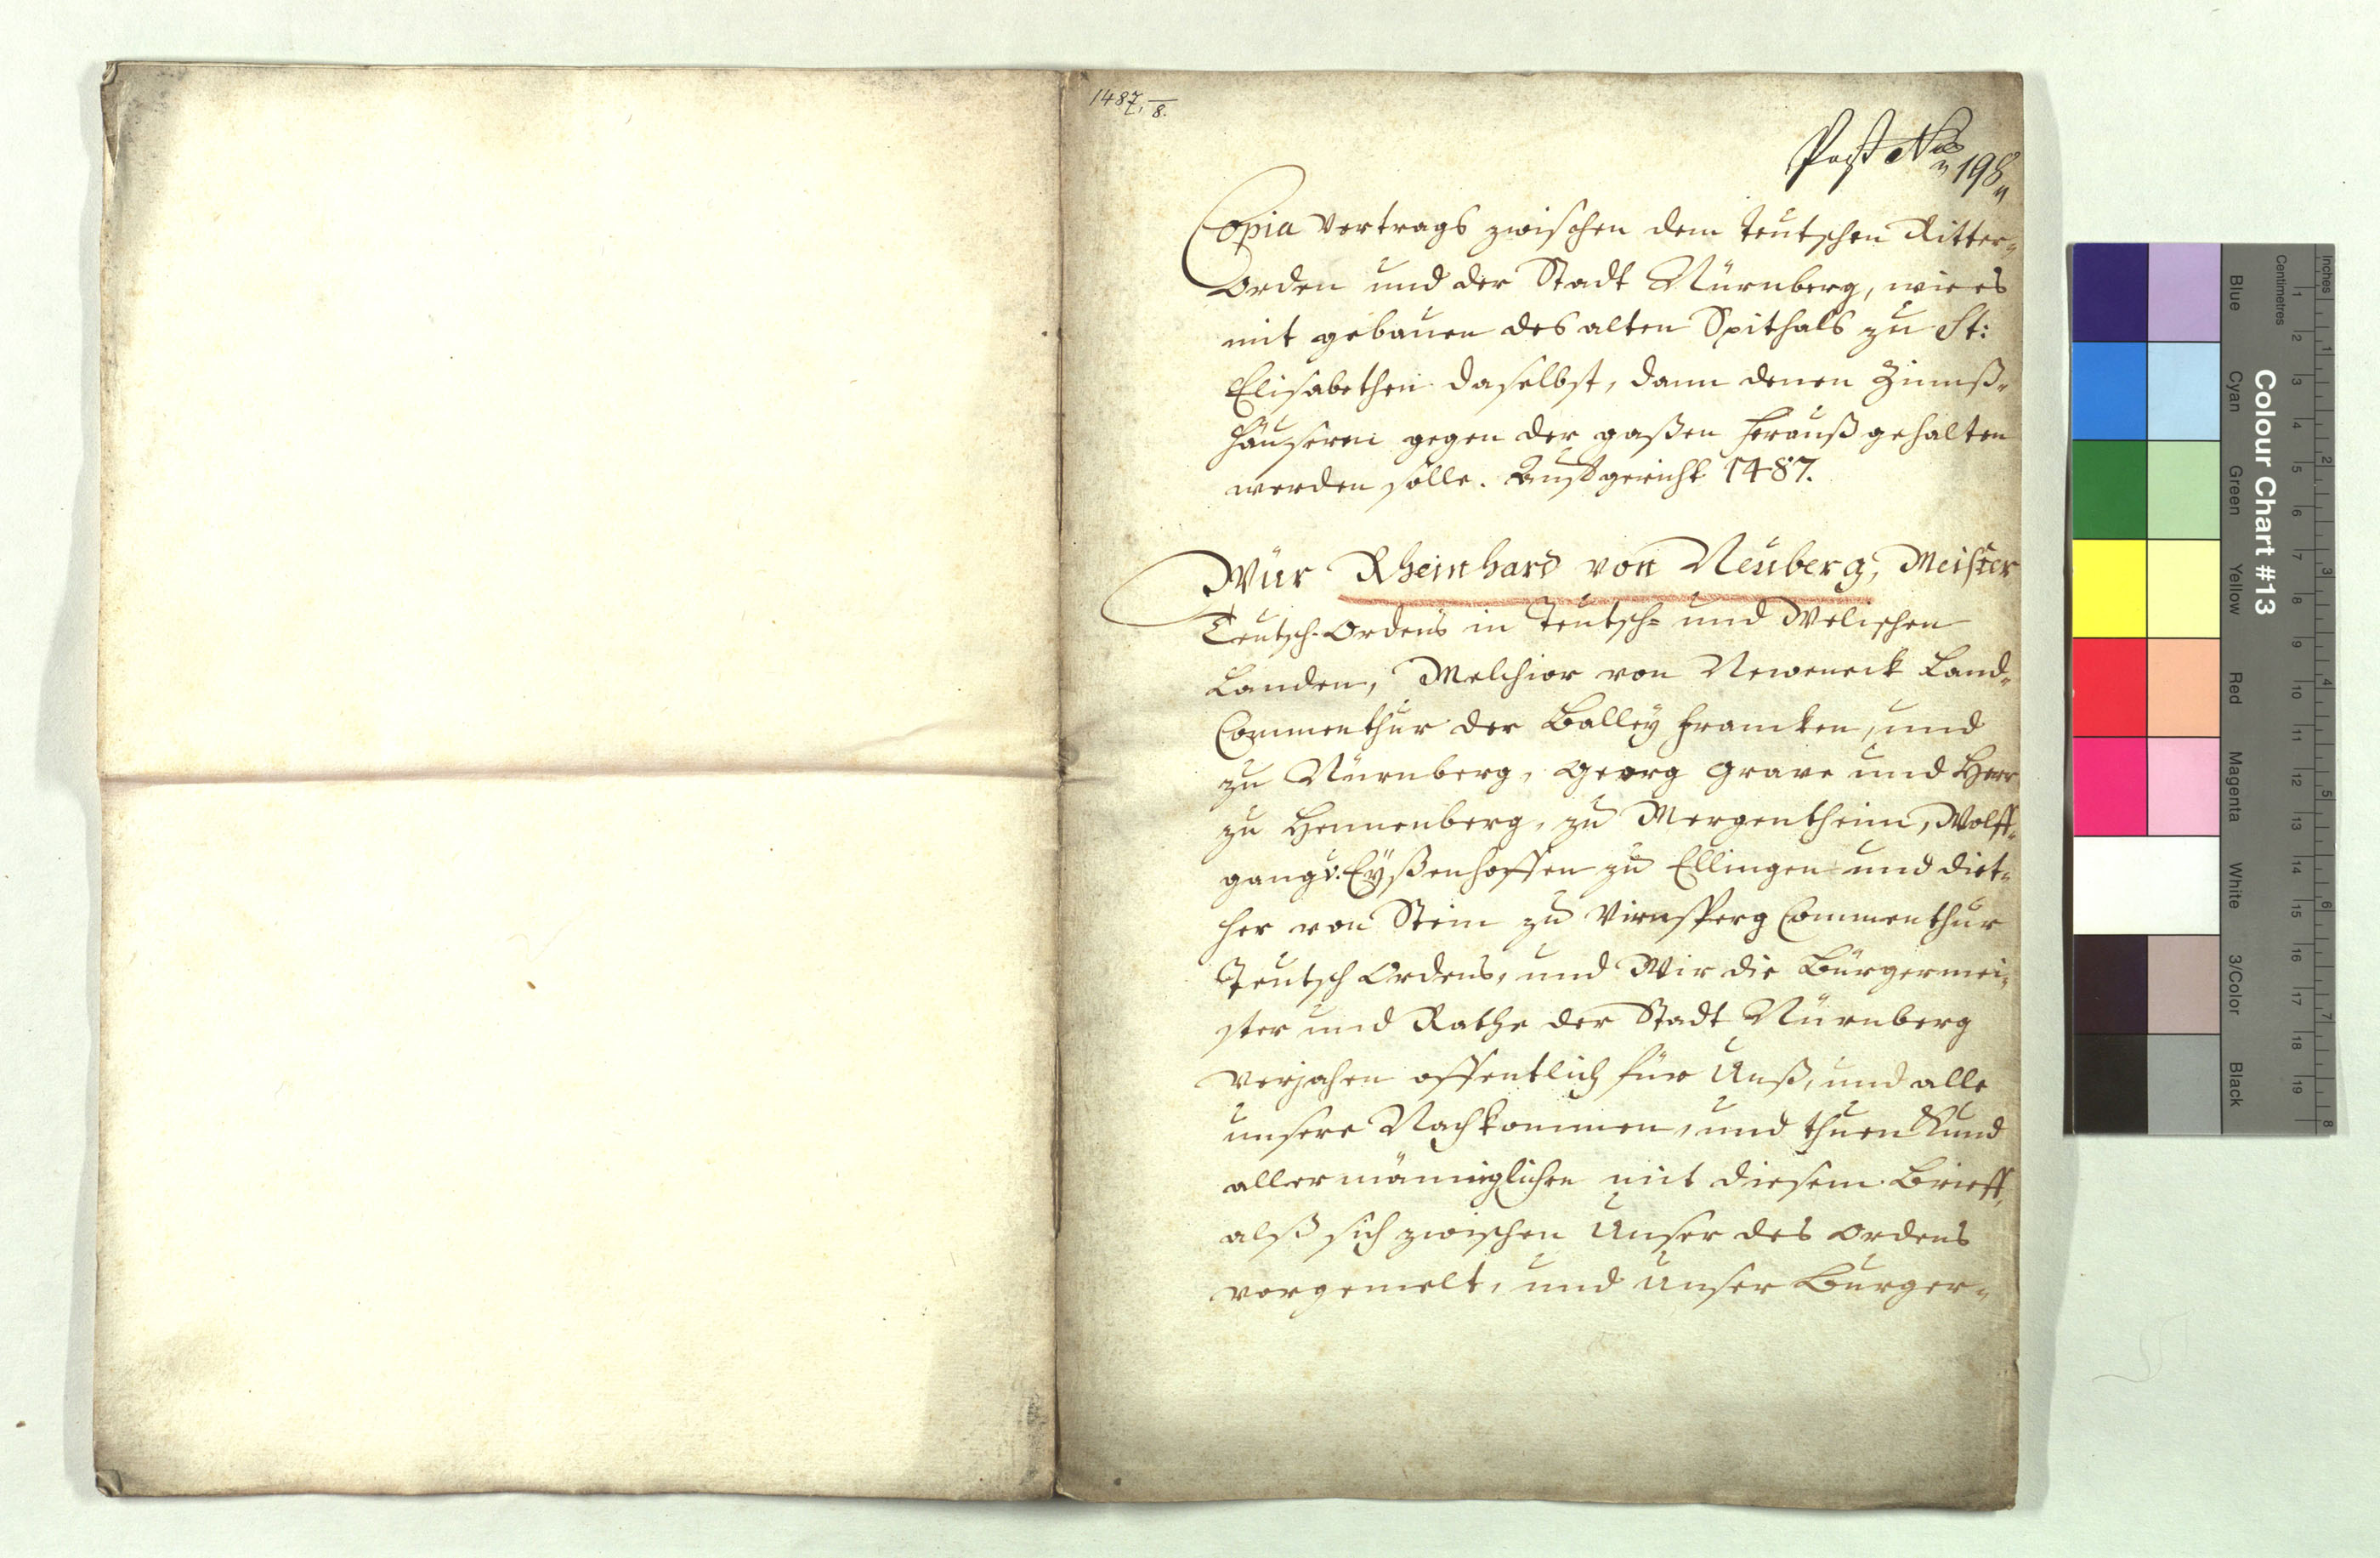 1487. — 8.
Post No 198
Copia Vertrags zwischen dem Teutschen Ritter-
Orden und der Stadt Nürnberg, wie es
mit gebäuen des alten Spithals zu St:
Elisabethen daselbst, dann denen Zinnß-
häuseren gegen der gaßen herauß gehalten
werden solle. Aufgericht 1487.
Wür Rheinhard von Neuberg, Meister
Teutsch-Ordens in Teutsch- und Welischen
Landen, Melchior von Neweneck Land-
Commenthur der Balley Francken, und
zu Nürnberg, Georg Grave und Herr
zu Hennenberg, zu Mergentheim, Wolff-
gang v. Eyßenhoffen zu Ellingen und Diet-
her von Stein zu Virnsperg Commenthur
Teutsch Ordens, und Wir die Bürgermei-
ster und Rathe der Stadt Nürnberg
verjahen offentlich für Unß, und alle
unsere Nachkommen, und thuen Kund
allermänniglichen mit diesem Brieff,
alß sich zwischen Unser des Ordens
vorgemelt, und Unser Burger-
Colour Chart #13
Blue
Cyan
Green
Yellow
Red
Magenta
White
3/Color
Black
Inches
1
2
3
4
5
6
7
8
Centimetres
1
2
3
4
5
6
7
8
9
10
11
12
13
14
15
16
17
18
19